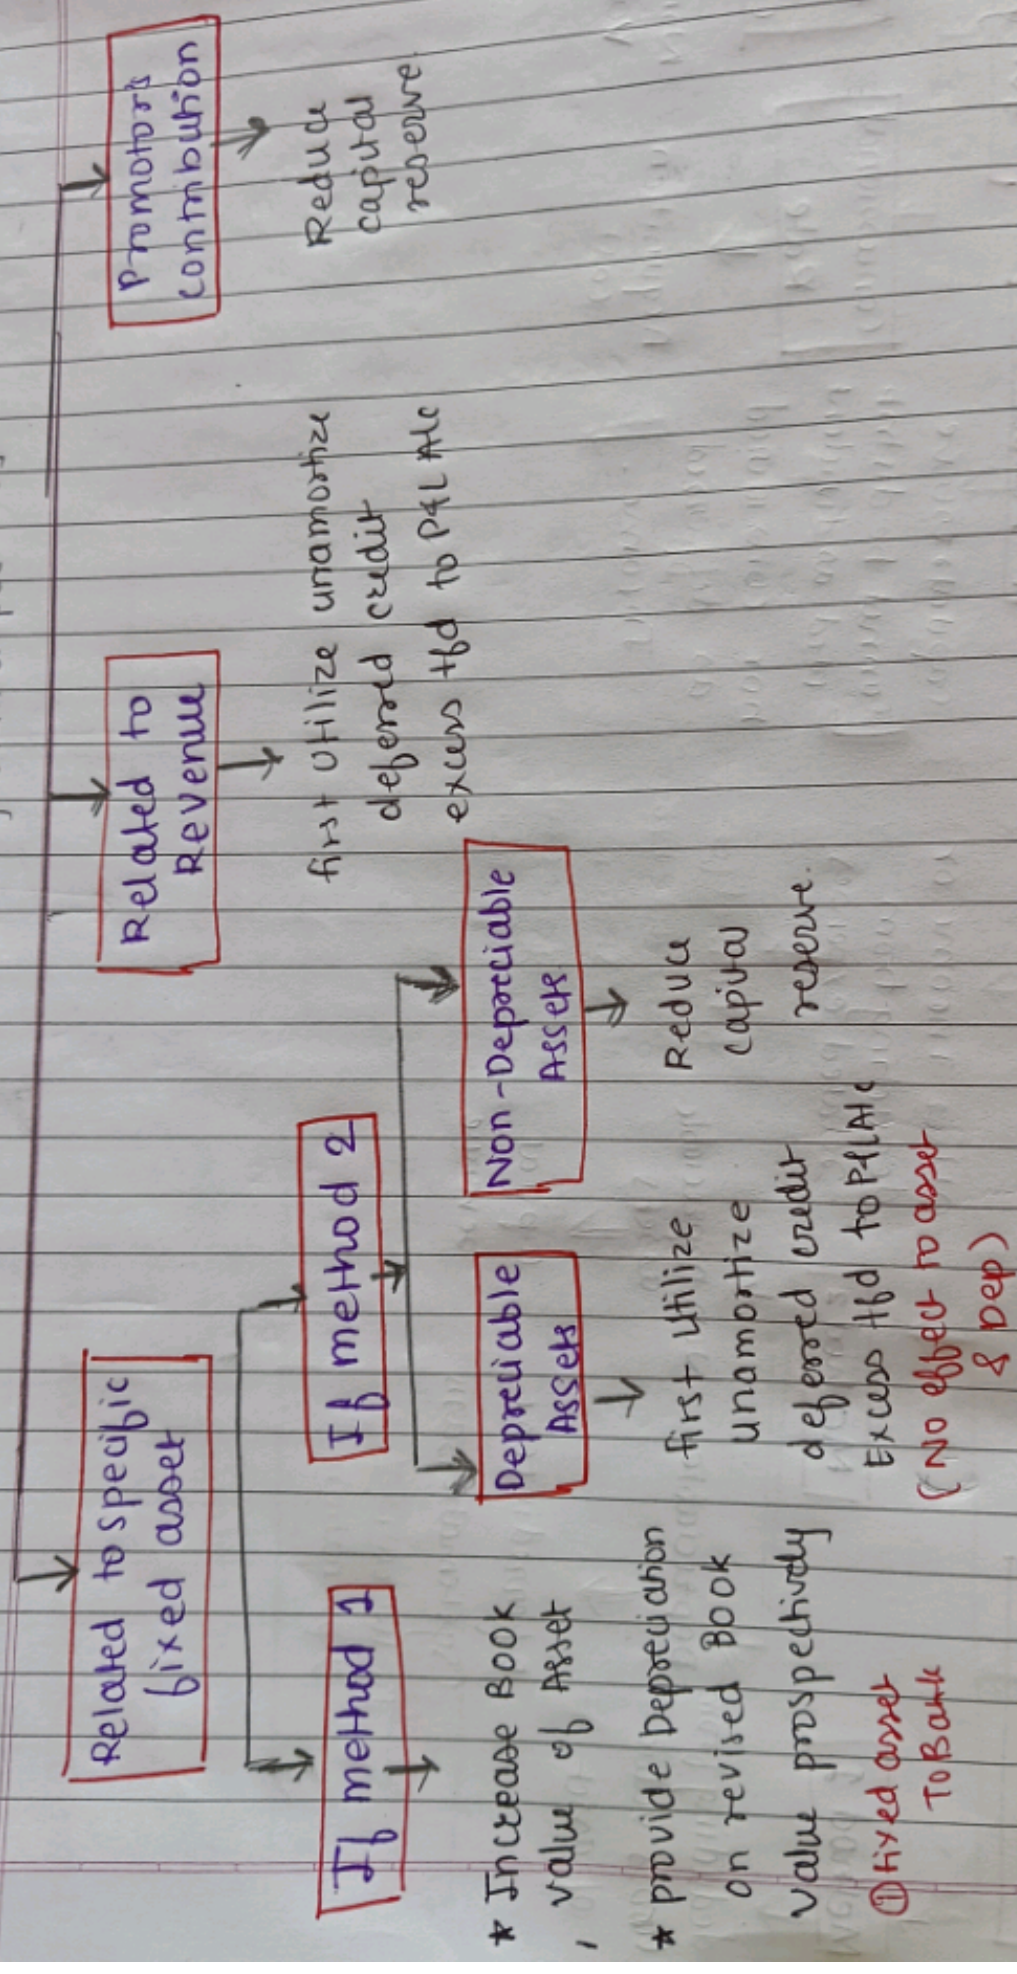 Related to specific
fixed asset
If method 1
* Increase Book
value of Asset
* provide Depreciation
on revised Book
value prospectively
① Fixed asset
To Bank
If method 2
Depreciable
Assets
first utilize
unamortize
deferred credit
Excess tfd to P&L A/c
(No effect to asset
& Dep)
Non-Depreciable
Assets
Reduce
capital
reserve.
Related to
Revenue
first utilize unamortize
deferred credit
excess tfd to P&L A/c
Promotors
contribution
Reduce
capital
reserve